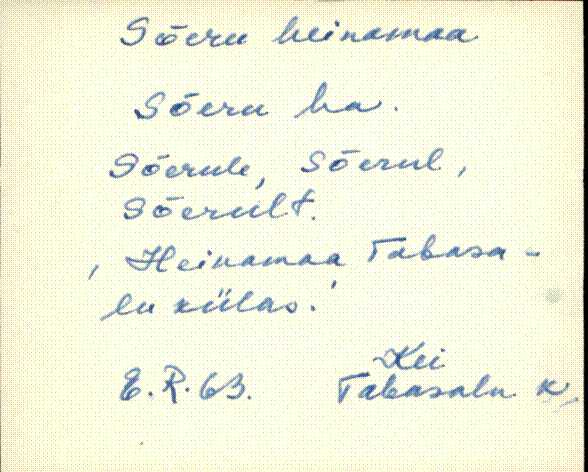 Sõeru heinamaa
Sõeru ha.
Sõerule, Sõerul,
Sõerult.
, Heinamaa Tabasa-
lu külas.'
Kei
E.R. 63. Tabasalu k.